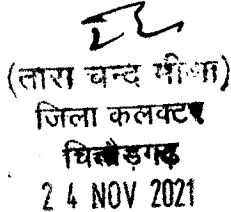 (तारा चन्द मीणा)
जिला कलक्टर
चित्तौड़गढ़
2 4 NOV 2021